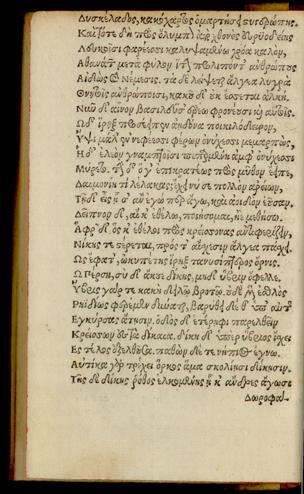 Δυσκέλαδος, κακόχαρτος ὁμαρτήσει στυγερώπης.
Καὶ τότε δὴ πρὸς ὄλυμπον ἀπὸ χθονὸς εὐρυοδείης
Λευκοῖσιν φαρέεσσι καλυψαμένω χρόα καλὸν,
Ἀθανάτων μετὰ φῦλον ἴτην προλιπόντ' ἀνθρώπους
Αἰδὼς καὶ Νέμεσις. τὰ δὲ λείψεται ἄλγεα λυγρὰ
Θνητοῖς ἀνθρώποισι, κακοῦ δ' οὐκ ἔσσεται ἀλκή.
Νῦν δ' αἶνον βασιλεῦσ' ἐρέω φρονέουσι καὶ αὐτοῖς.
Ὧδ' ἴρηξ προσέειπεν ἀηδόνα ποικιλόδειρον,
Ὕψι μάλ' ἐν νεφέεσσι φέρων ὀνύχεσσι μεμαρπώς,
Ἡ δ' ἐλεὸν γναμπτοῖσι πεπαρμένη ἀμφ' ὀνύχεσσι
Μύρετο. τὴν δ' ὅγ' ἐπικρατέως πρὸς μῦθον ἔειπε,
Δαιμονίη τί λέλακας; ἔχει νύ σε πολλὸν ἀρείων,
Τῇ δ' εἶς ᾗ σ' ἂν ἐγώ περ ἄγω, καὶ ἀοιδὸν ἐοῦσαν.
Δεῖπνον δ', αἴ κ' ἐθέλω, ποιήσομαι, ἠὲ μεθήσω.
Ἄφρων δ' ὅς κ' ἐθέλοι πρὸς κρείσσονας ἀντιφερίζειν,
Νίκης τε στέρεται, πρός τ' αἴσχεσιν ἄλγεα πάσχει.
Ὣς ἔφατ', ὠκυπέτης ἴρηξ τανυσίπτερος ὄρνις.
Ὦ Πέρση, σὺ δ' ἄκουε δίκης, μηδ' ὕβριν ὄφελλε.
Ὕβρις γάρ τε κακὴ δειλῷ βροτῷ. οὐδὲ μὲν ἐσθλὸς
Ῥηϊδίως φερέμεν δύναται, βαρύθει δέ θ' ὑπ' αὐτῆς
Ἐγκύρσας ἄτῃσιν. ὁδὸς δ' ἑτέρηφι παρελθεῖν
Κρείσσων ἐς τὰ δίκαια. δίκη δ' ὑπὲρ ὕβριος ἴσχει
Ἐς τέλος ἐξελθοῦσα. παθὼν δέ τε νήπιος ἔγνω.
Αὐτίκα γὰρ τρέχει ὅρκος ἅμα σκολιῇσι δίκῃσιν.
Τῆς δὲ δίκης ῥόθος ἑλκομένης ᾗ κ' ἄνδρες ἄγωσι
Δωροφά-